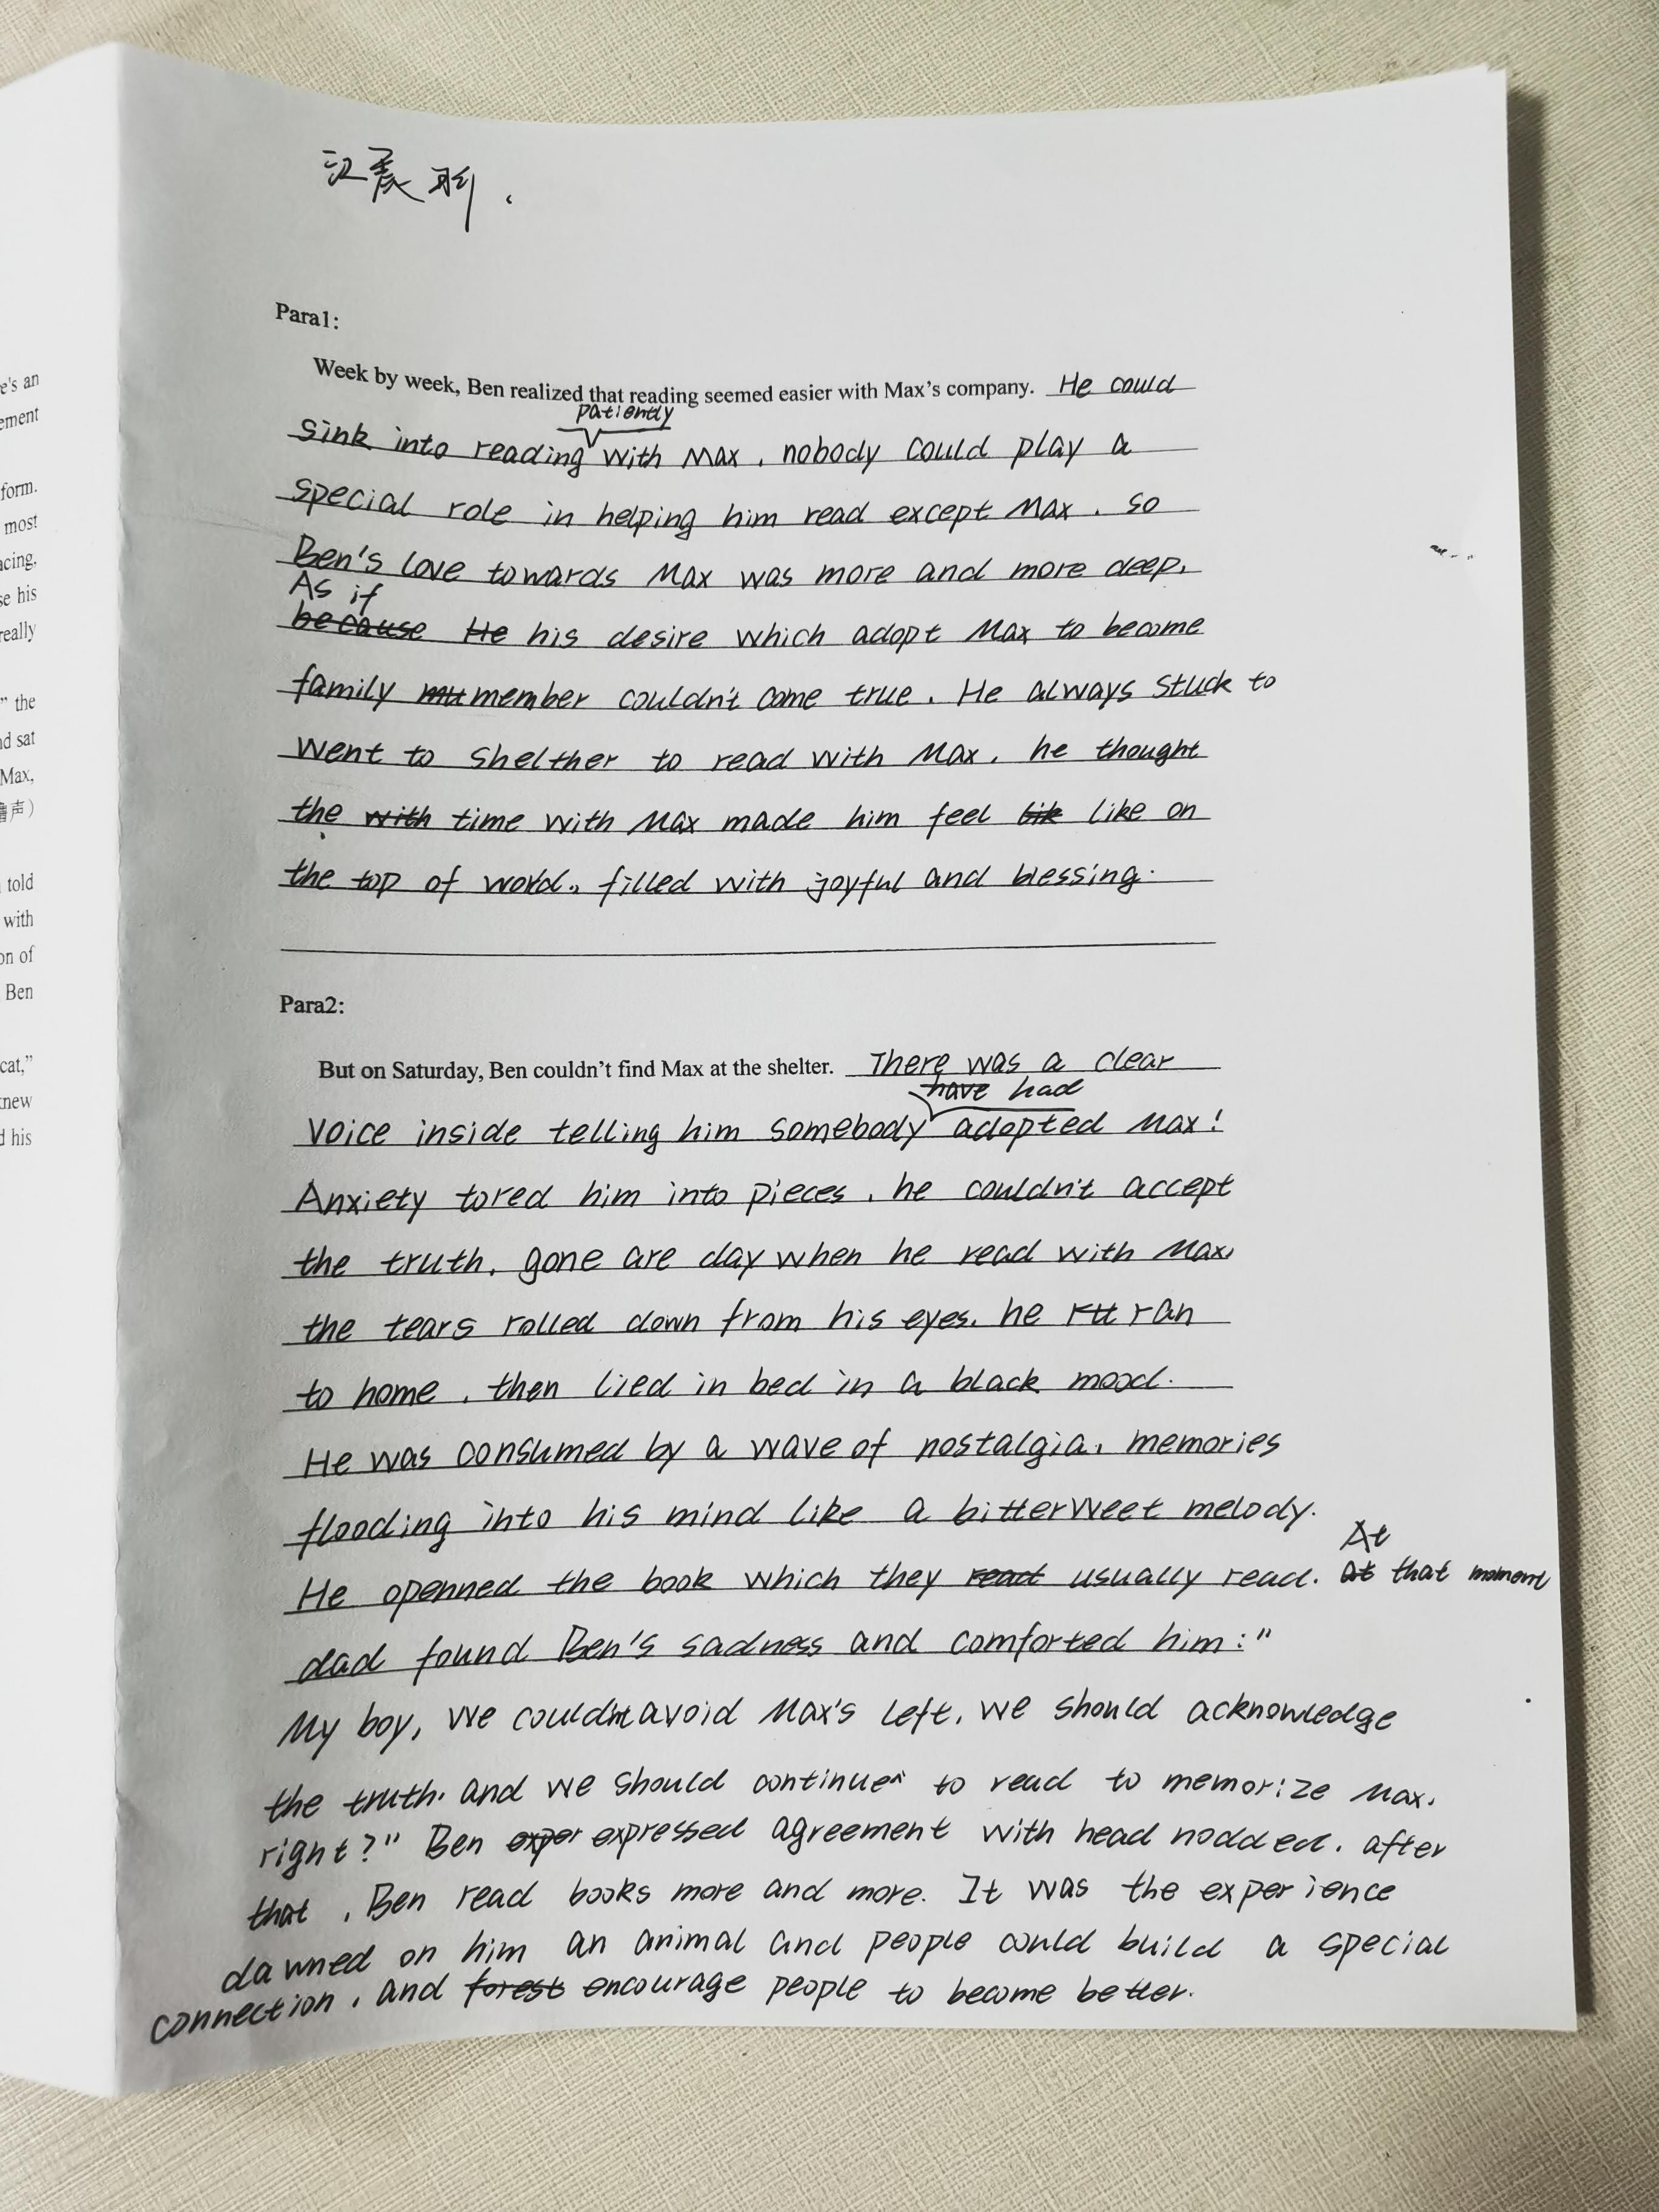 e's an
ement
form.
most
acing,
se his
really
" the
nd sat
Max,
声）
told
with
on of
Ben
cat,"
knew
d his
Para1:
Week by week, Ben realized that reading seemed easier with Max's company. He could
patiently
sink into reading with Max, nobody could play a
special role in helping him read except Max. so
Ben's love towards Max was more and more deep.
As if
because He his desire which adopt Max to become
family member couldn't come true. He always stuck to
went to shelther to read with Max. he thought
the with time with Max made him feel lik like on
the top of world, filled with joyful and blessing.
Para2:
But on Saturday, Ben couldn't find Max at the shelter. There was a clear
have had
voice inside telling him somebody adopted Max!
Anxiety tored him into pieces, he couldn't accept
the truth. gone are day when he read with Max,
the tears rolled down from his eyes. he ran
to home, then lied in bed in a black mood.
He was consumed by a wave of nostalgia, memories
flooding into his mind like a bitterweet melody.
At
He openned the book which they read usually read. at that moment
dad found Ben's sadness and comforted him:"
My boy, we couldn't avoid Max's left, we should acknowledge
the truth. and we should continue to read to memorize Max,
right?" Ben exper expressed agreement with head nodded. after
that, Ben read books more and more. It was the experience
dawned on him an animal and people could build a special
connection, and forest encourage people to become better.